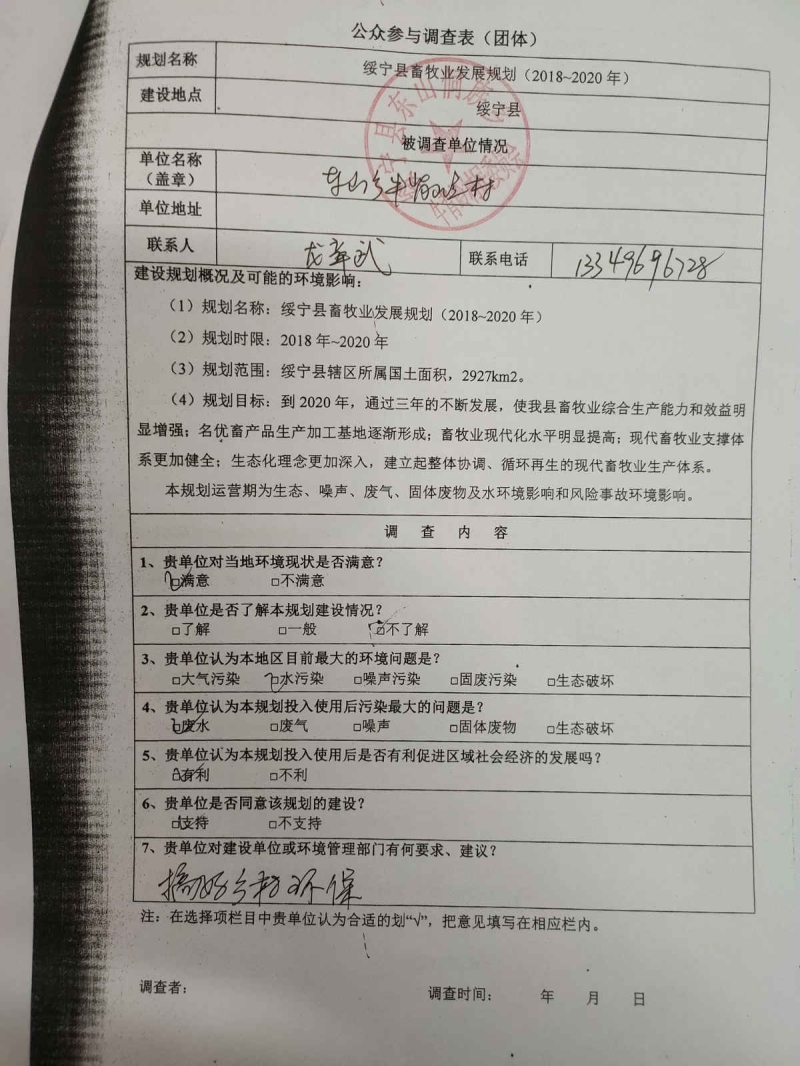 公众参与调查表（团体）
规划名称 绥宁县畜牧业发展规划（2018~2020 年）
建设地点 绥宁县
被调查单位情况
单位名称（盖章） 东山乡牛背岭村
单位地址
联系人 龙章武 联系电话 13349696728
建设规划概况及可能的环境影响：
（1）规划名称：绥宁县畜牧业发展规划（2018~2020 年）
（2）规划时限：2018 年~2020 年
（3）规划范围：绥宁县辖区所属国土面积，2927km2。
（4）规划目标：到 2020 年，通过三年的不断发展，使我县畜牧业综合生产能力和效益明
显增强；名优畜产品生产加工基地逐渐形成；畜牧业现代化水平明显提高；现代畜牧业支撑体
系更加健全；生态化理念更加深入，建立起整体协调、循环再生的现代畜牧业生产体系。
本规划运营期为生态、噪声、废气、固体废物及水环境影响和风险事故环境影响。
调 查 内 容
1、贵单位对当地环境现状是否满意？
☑满意 □不满意
2、贵单位是否了解本规划建设情况？
□了解 □一般 ☑不了解
3、贵单位认为本地区目前最大的环境问题是？
□大气污染 ☑水污染 □噪声污染 □固废污染 □生态破坏
4、贵单位认为本规划投入使用后污染最大的问题是？
☑废水 □废气 □噪声 □固体废物 □生态破坏
5、贵单位认为本规划投入使用后是否有利促进区域社会经济的发展吗？
☑有利 □不利
6、贵单位是否同意该规划的建设？
☑支持 □不支持
7、贵单位对建设单位或环境管理部门有何要求、建议？
搞好乡村环保
注：在选择项栏目中贵单位认为合适的划“√”，把意见填写在相应栏内。
调查者： 调查时间： 年 月 日